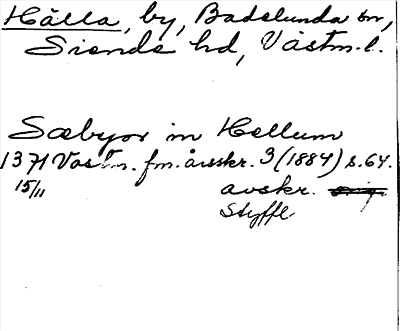 Hälla, by, Badelunda sn,
Siende hd, Västm. l.
Sæbyor in Hellum
1371 Västm. fm. årsskr. 3 (1884) s. 64.
15/11 avskr. orig.
Styffe